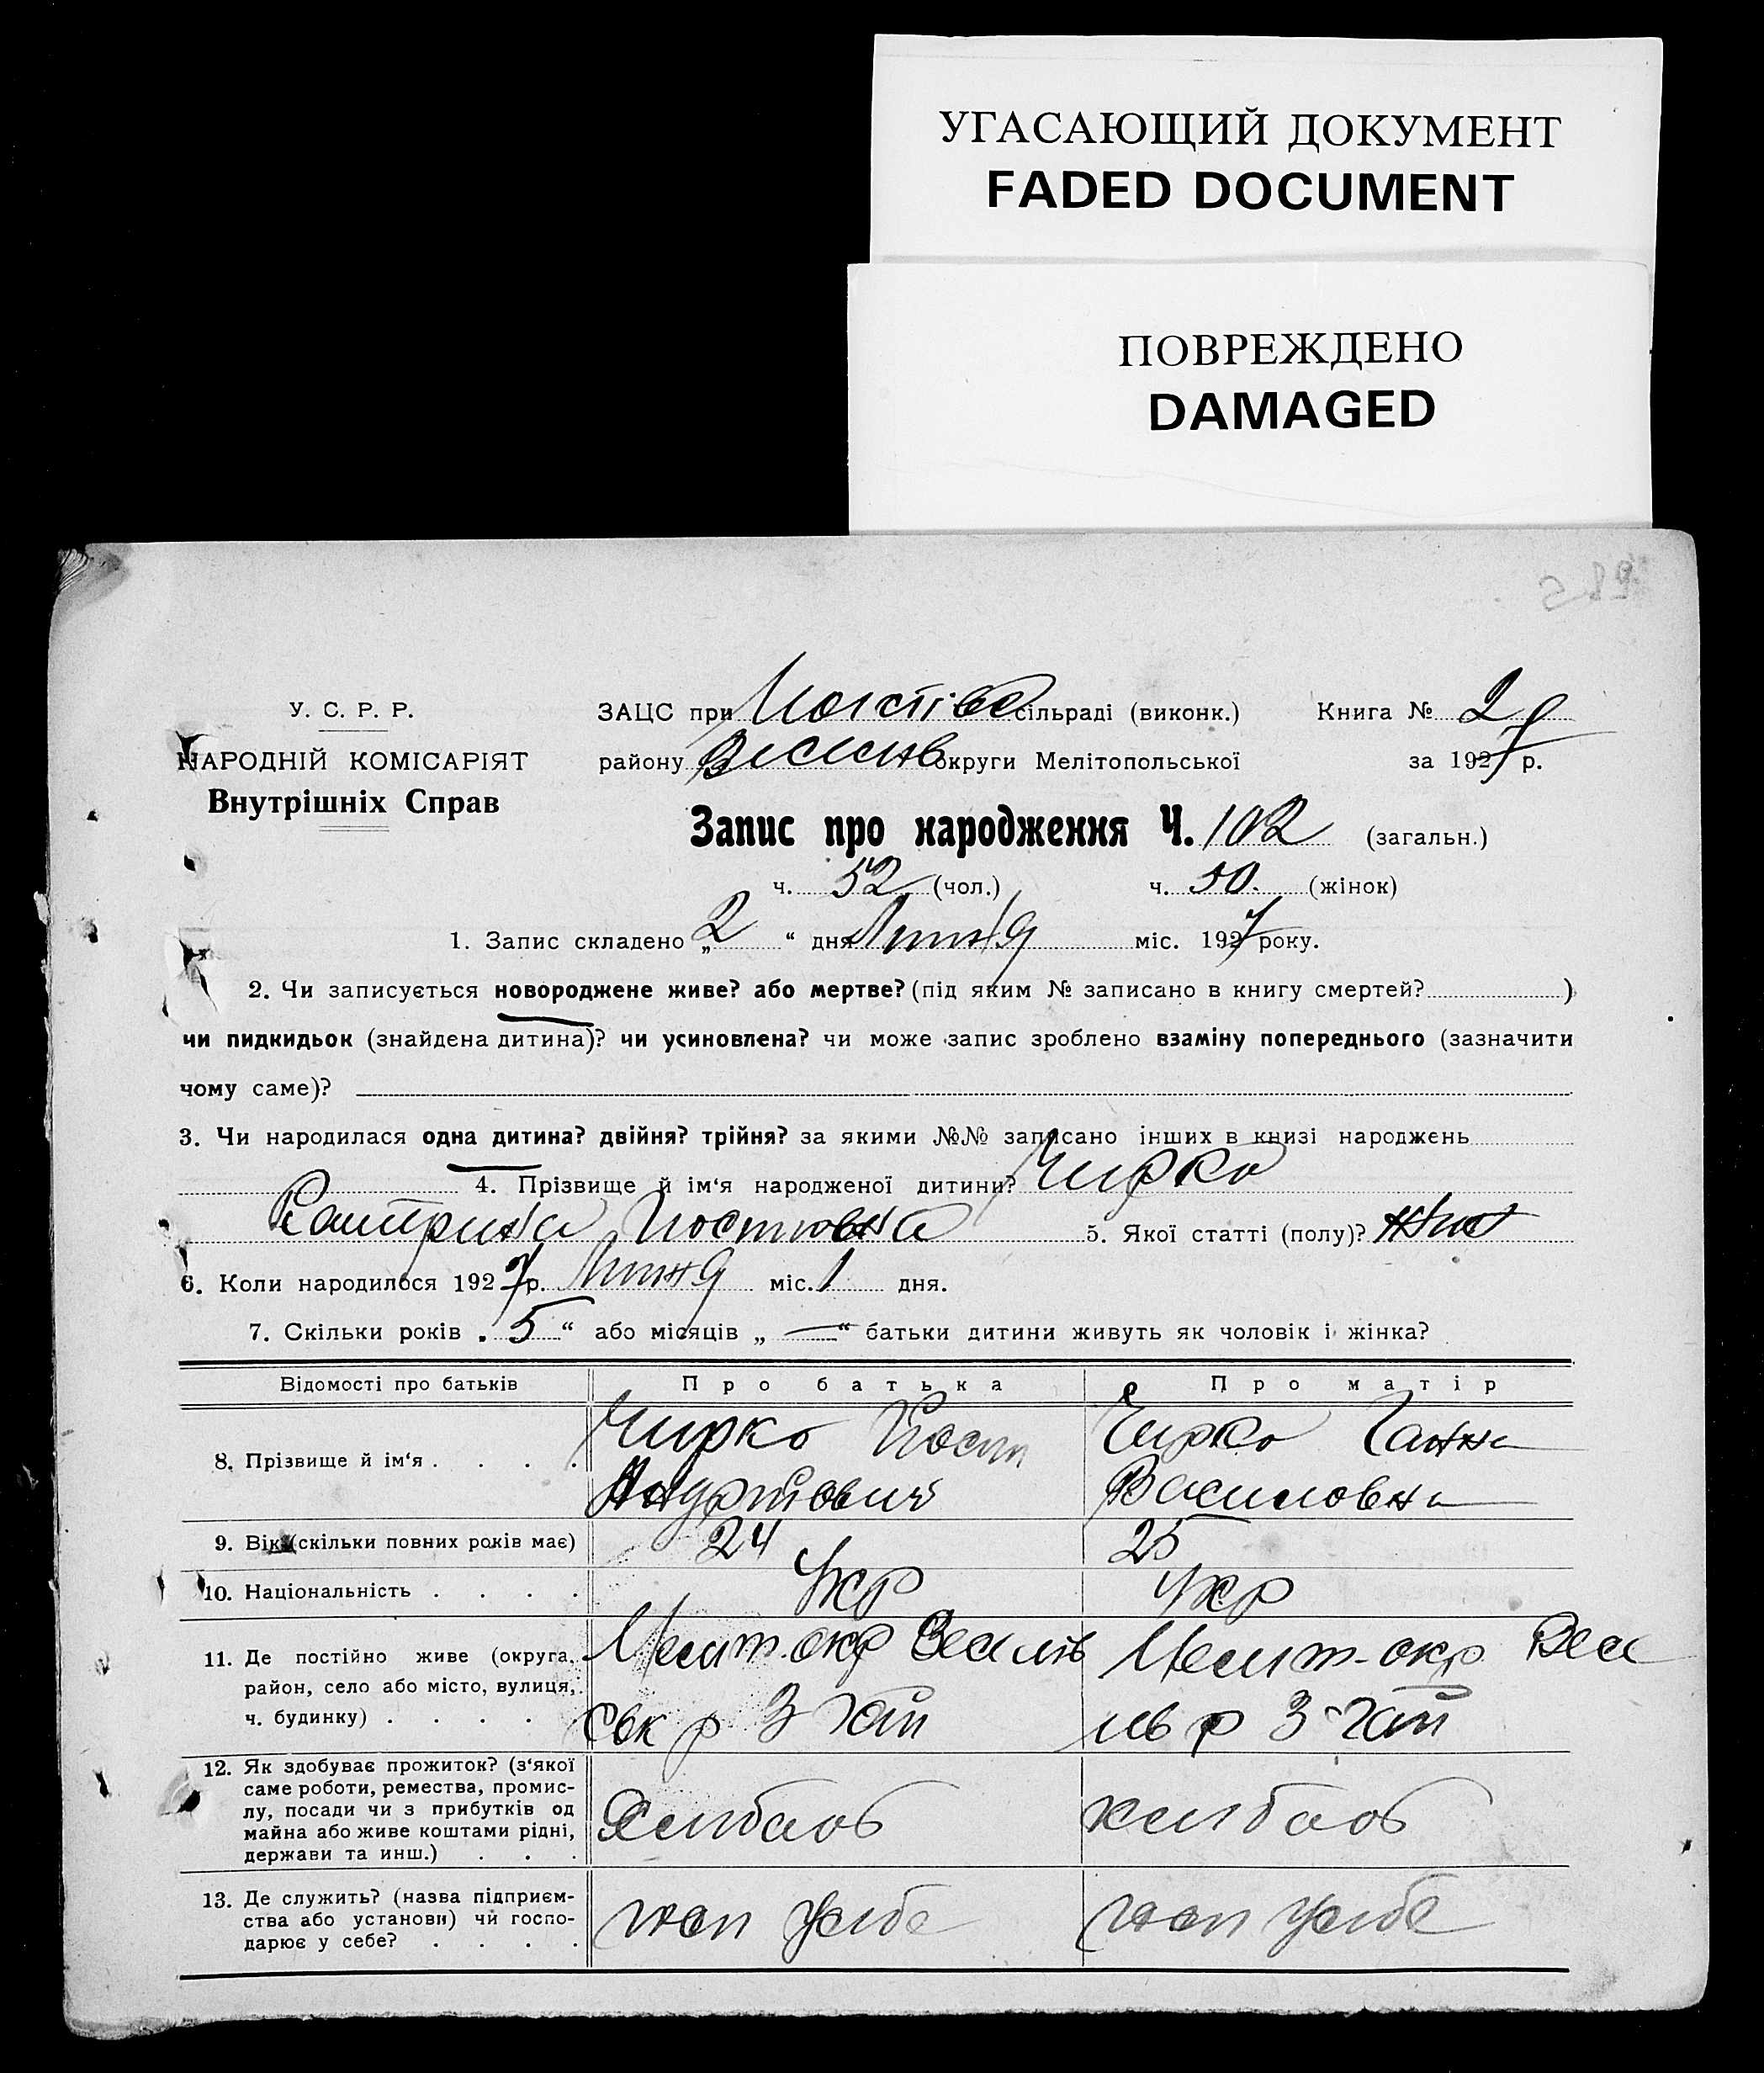 УГАСАЮЩИЙ ДОКУМЕНТ
FADED DOCUMENT
ПОВРЕЖДЕНО
DAMAGED
582
У. С. Р. Р.
НАРОДНІЙ КОМІСАРІЯТ
Внутрішніх Справ
ЗАЦС при сільраді (виконк.) Книга № 2
району округи Мелітопольської за 1927 р.
Запис про народження Ч. 102 (загальн.)
ч. 52 (чол.) ч. 50. (жінок)
1. Запис складено „ 2 “ дня Липня міс. 1927 року.
2. Чи записується новороджене живе? або мертве? (під яким № записано в книгу смертей? )
чи пидкидьок (знайдена дитина)? чи усиновлена? чи може запис зроблено взаміну попереднього (зазначити
чому саме)?
3. Чи народилася одна дитина? двійня? трійня? за якими №№ записано інших в книзі народжень
4. Прізвище й ім‘я народженої дитини? Чирко
Катерина 5. Якої статті (полу)? жін
6. Коли народилося 1927 р. Липня міс. 1 дня.
7. Скільки років „ 5 “ або місяців „ — “ батьки дитини живуть як чоловік і жінка?
Відомості про батьків Про батька Про матір
8. Прізвище й ім‘я . . . . Чирко Чирко Ганна
Василовна
9. Вік (скільки повних років має) 24 25
10. Національність . . . . Укр Укр
11. Де постійно живе (округа, Мелит. окр Мелит. окр Весе
район, село або місто, вулиця,
ч. будинку) . . . . . ськ р лів р
12. Як здобуває прожиток? (з‘якої
саме роботи, ремества, промис-
лу, посади чи з прибутків од Хлібороб хлібороб
майна або живе коштами рідні,
держави та инш.) . . .
13. Де служить? (назва підприєм-
ства або установи) чи госпо- госп у себе госп у себе
дарює у себе? . . . .